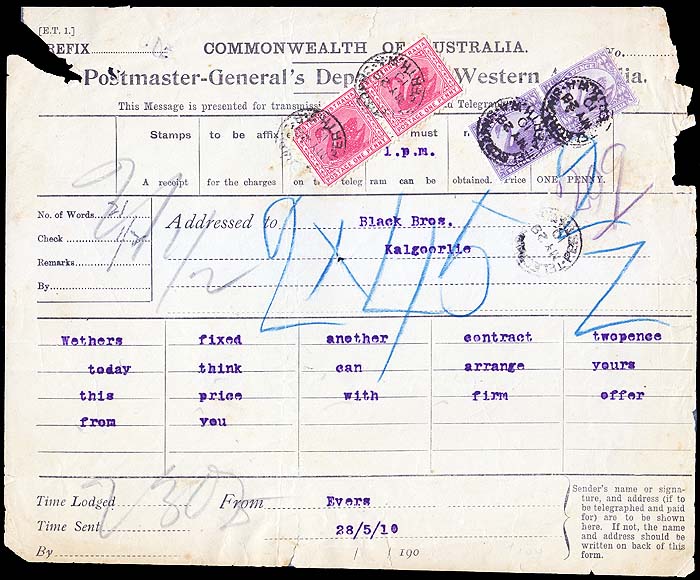 [E.T. 1.]
COMMONWEALTH OF AUSTRALIA.
No.
Postmaster-General's Western
This Message is presented for Telegra
Stamps to be must
1.p.m.
A receipt for the charges on telegram can be obtained. Price ONE PENNY.
No. of Words 21
Check
Remarks
By
Addressed to Black Bros.
Kalgoorlie
2 x 45
Wethers fixed another contract twopence
today think can arrange yours
this price with firm offer
from you
Time Lodged
From Evers
Time Sent
28/5/10
By / / 190
Sender's name or signa-
ture, and address (if to
be telegraphed and paid
for) are to be shown
here. If not, the name
and address should be
written on back of this
form.